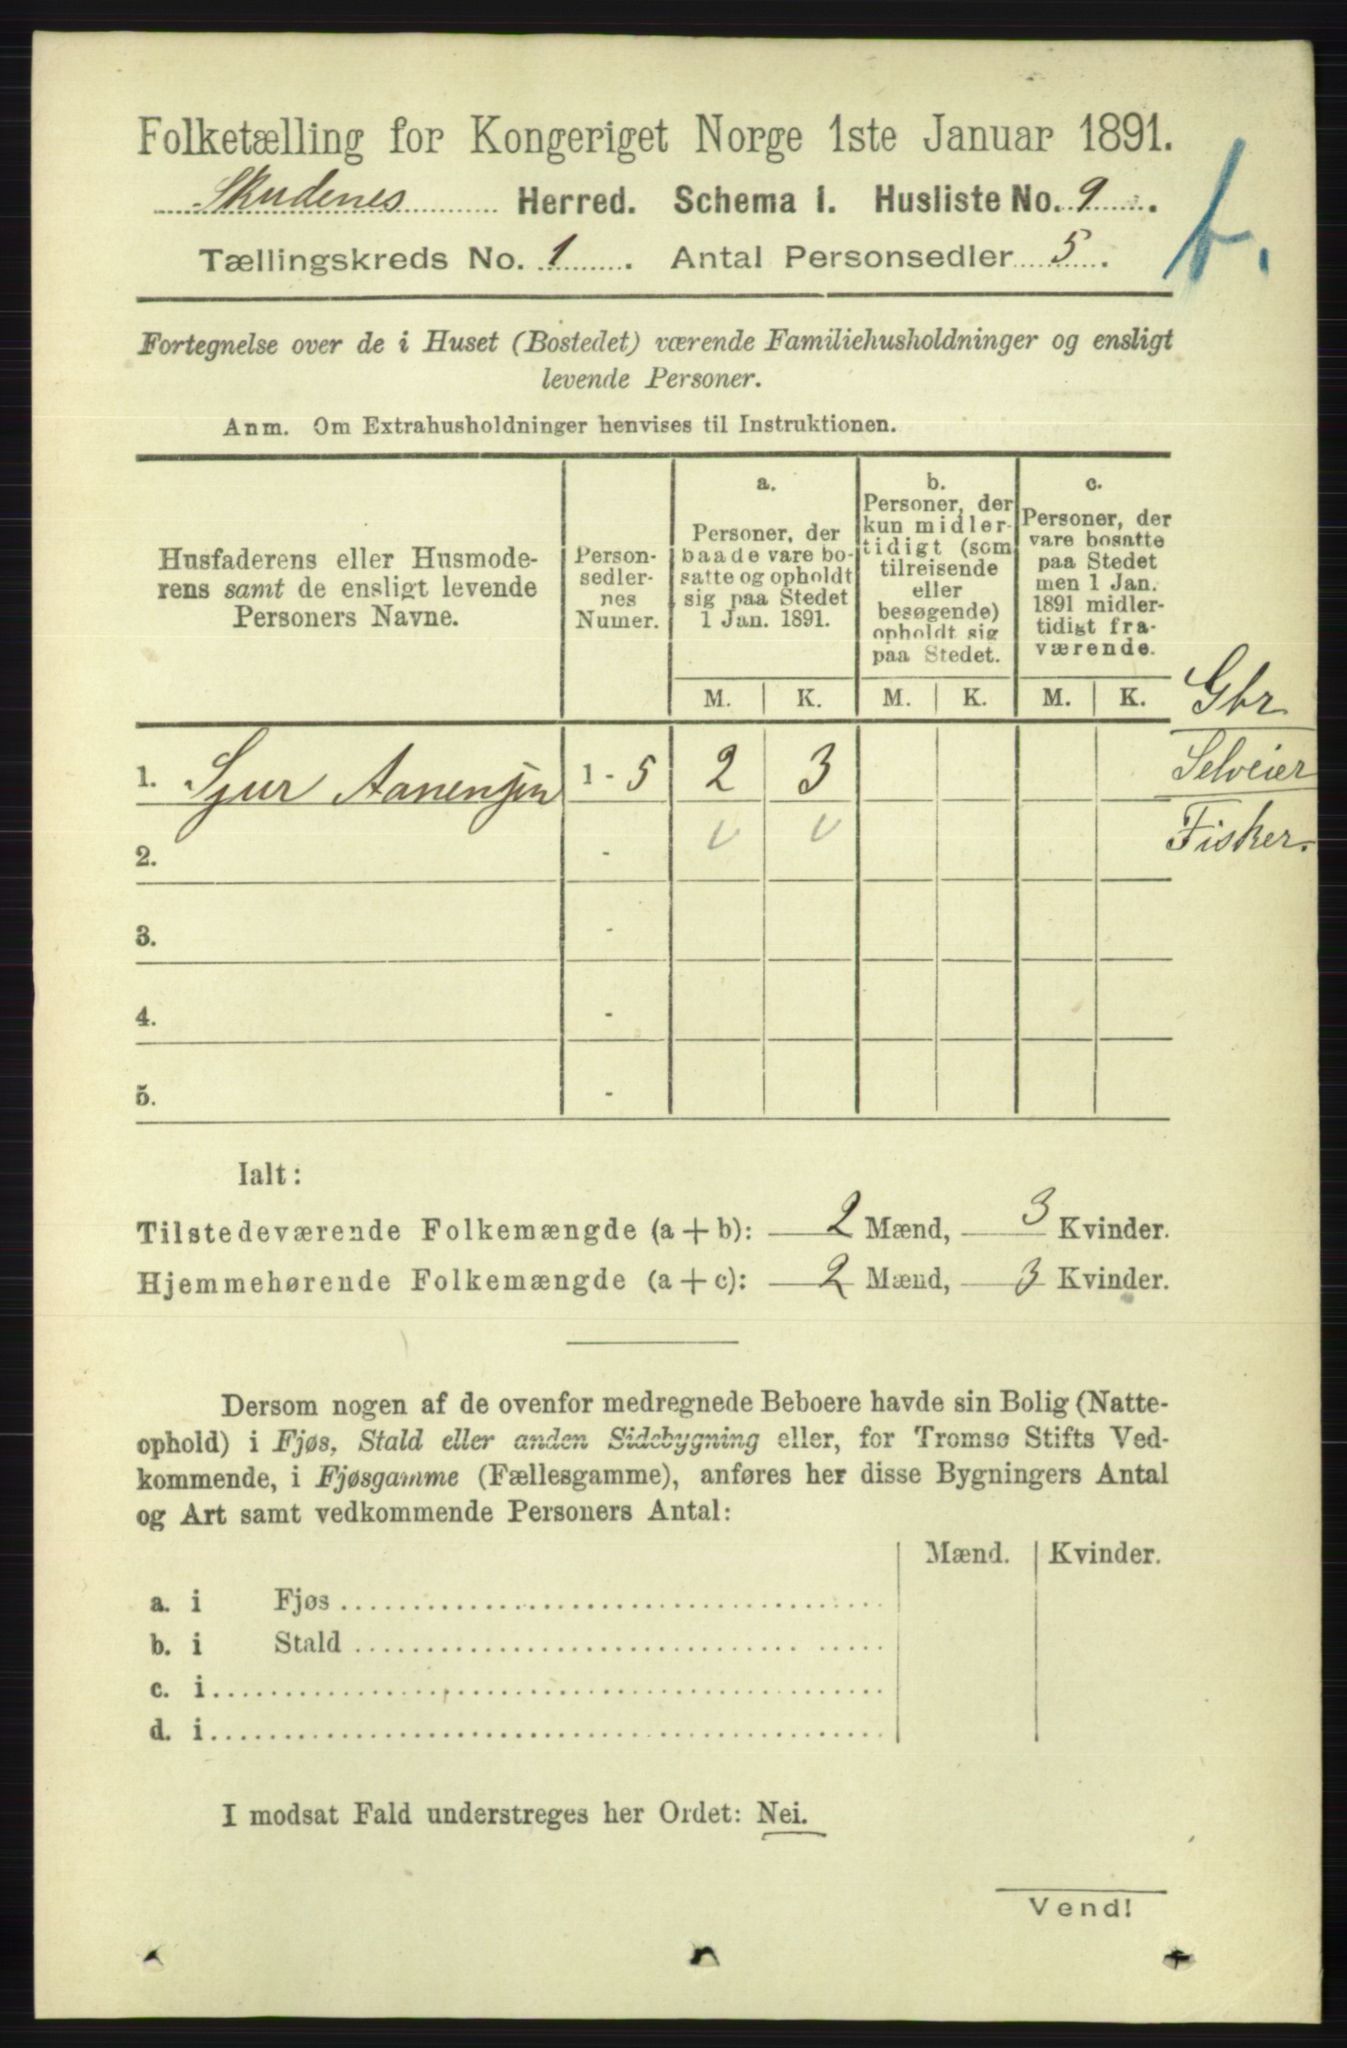 Folketælling for Kongeriget Norge 1ste Januar 1891.
Skudenes Herred. Schema I. Husliste No. 9.
Tællingskreds No. 1. Antal Personsedler 5.
b.
Fortegnelse over de i Huset (Bostedet) værende Familiehusholdninger og ensligt
levende Personer.
Anm. Om Extrahusholdninger henvises til Instruktionen.
Husfaderens eller Husmode-
rens samt de ensligt levende
Personers Navne.
Person-
sedler-
nes
Numer.
a.
Personer, der
baade vare bo-
satte og opholdt
sig paa Stedet
1 Jan. 1891.
b.
Personer, der
kun midler-
tidigt (som
tilreisende
eller
besøgende)
opholdt sig
paa Stedet.
c.
Personer, der
vare bosatte
paa Stedet
men 1 Jan.
1891 midler-
tidigt fra-
værende.
M. K. M. K. M. K.
Gbr
Selveier
Fisker.
1. Sjur Aanensen 1 - 5 2 3
2. -
3. -
4. -
5. -
Ialt:
Tilstedeværende Folkemængde (a + b): 2 Mænd, 3 Kvinder.
Hjemmehørende Folkemængde (a + c): 2 Mænd, 3 Kvinder.
Dersom nogen af de ovenfor medregnede Beboere havde sin Bolig (Natte-
ophold) i Fjøs, Stald eller anden Sidebygning eller, for Tromsø Stifts Ved-
kommende, i Fjøsgamme (Fællesgamme), anføres her disse Bygningers Antal
og Art samt vedkommende Personers Antal:
Mænd. Kvinder.
a. i Fjøs
b. i Stald
c. i
d. i
I modsat Fald understreges her Ordet: Nei.
Vend!